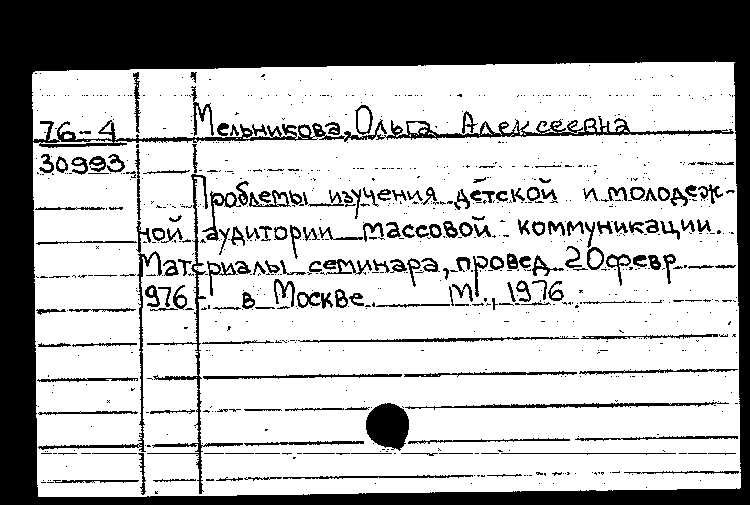 76-4
Мельникова, Ольга Алексеевна
30993
Проблемы изучения детской и молодеж-
ной аудитории массовой коммуникации.
Материалы семинара, провед. 20 февр.
1976 г. в Москве. М., 1976.